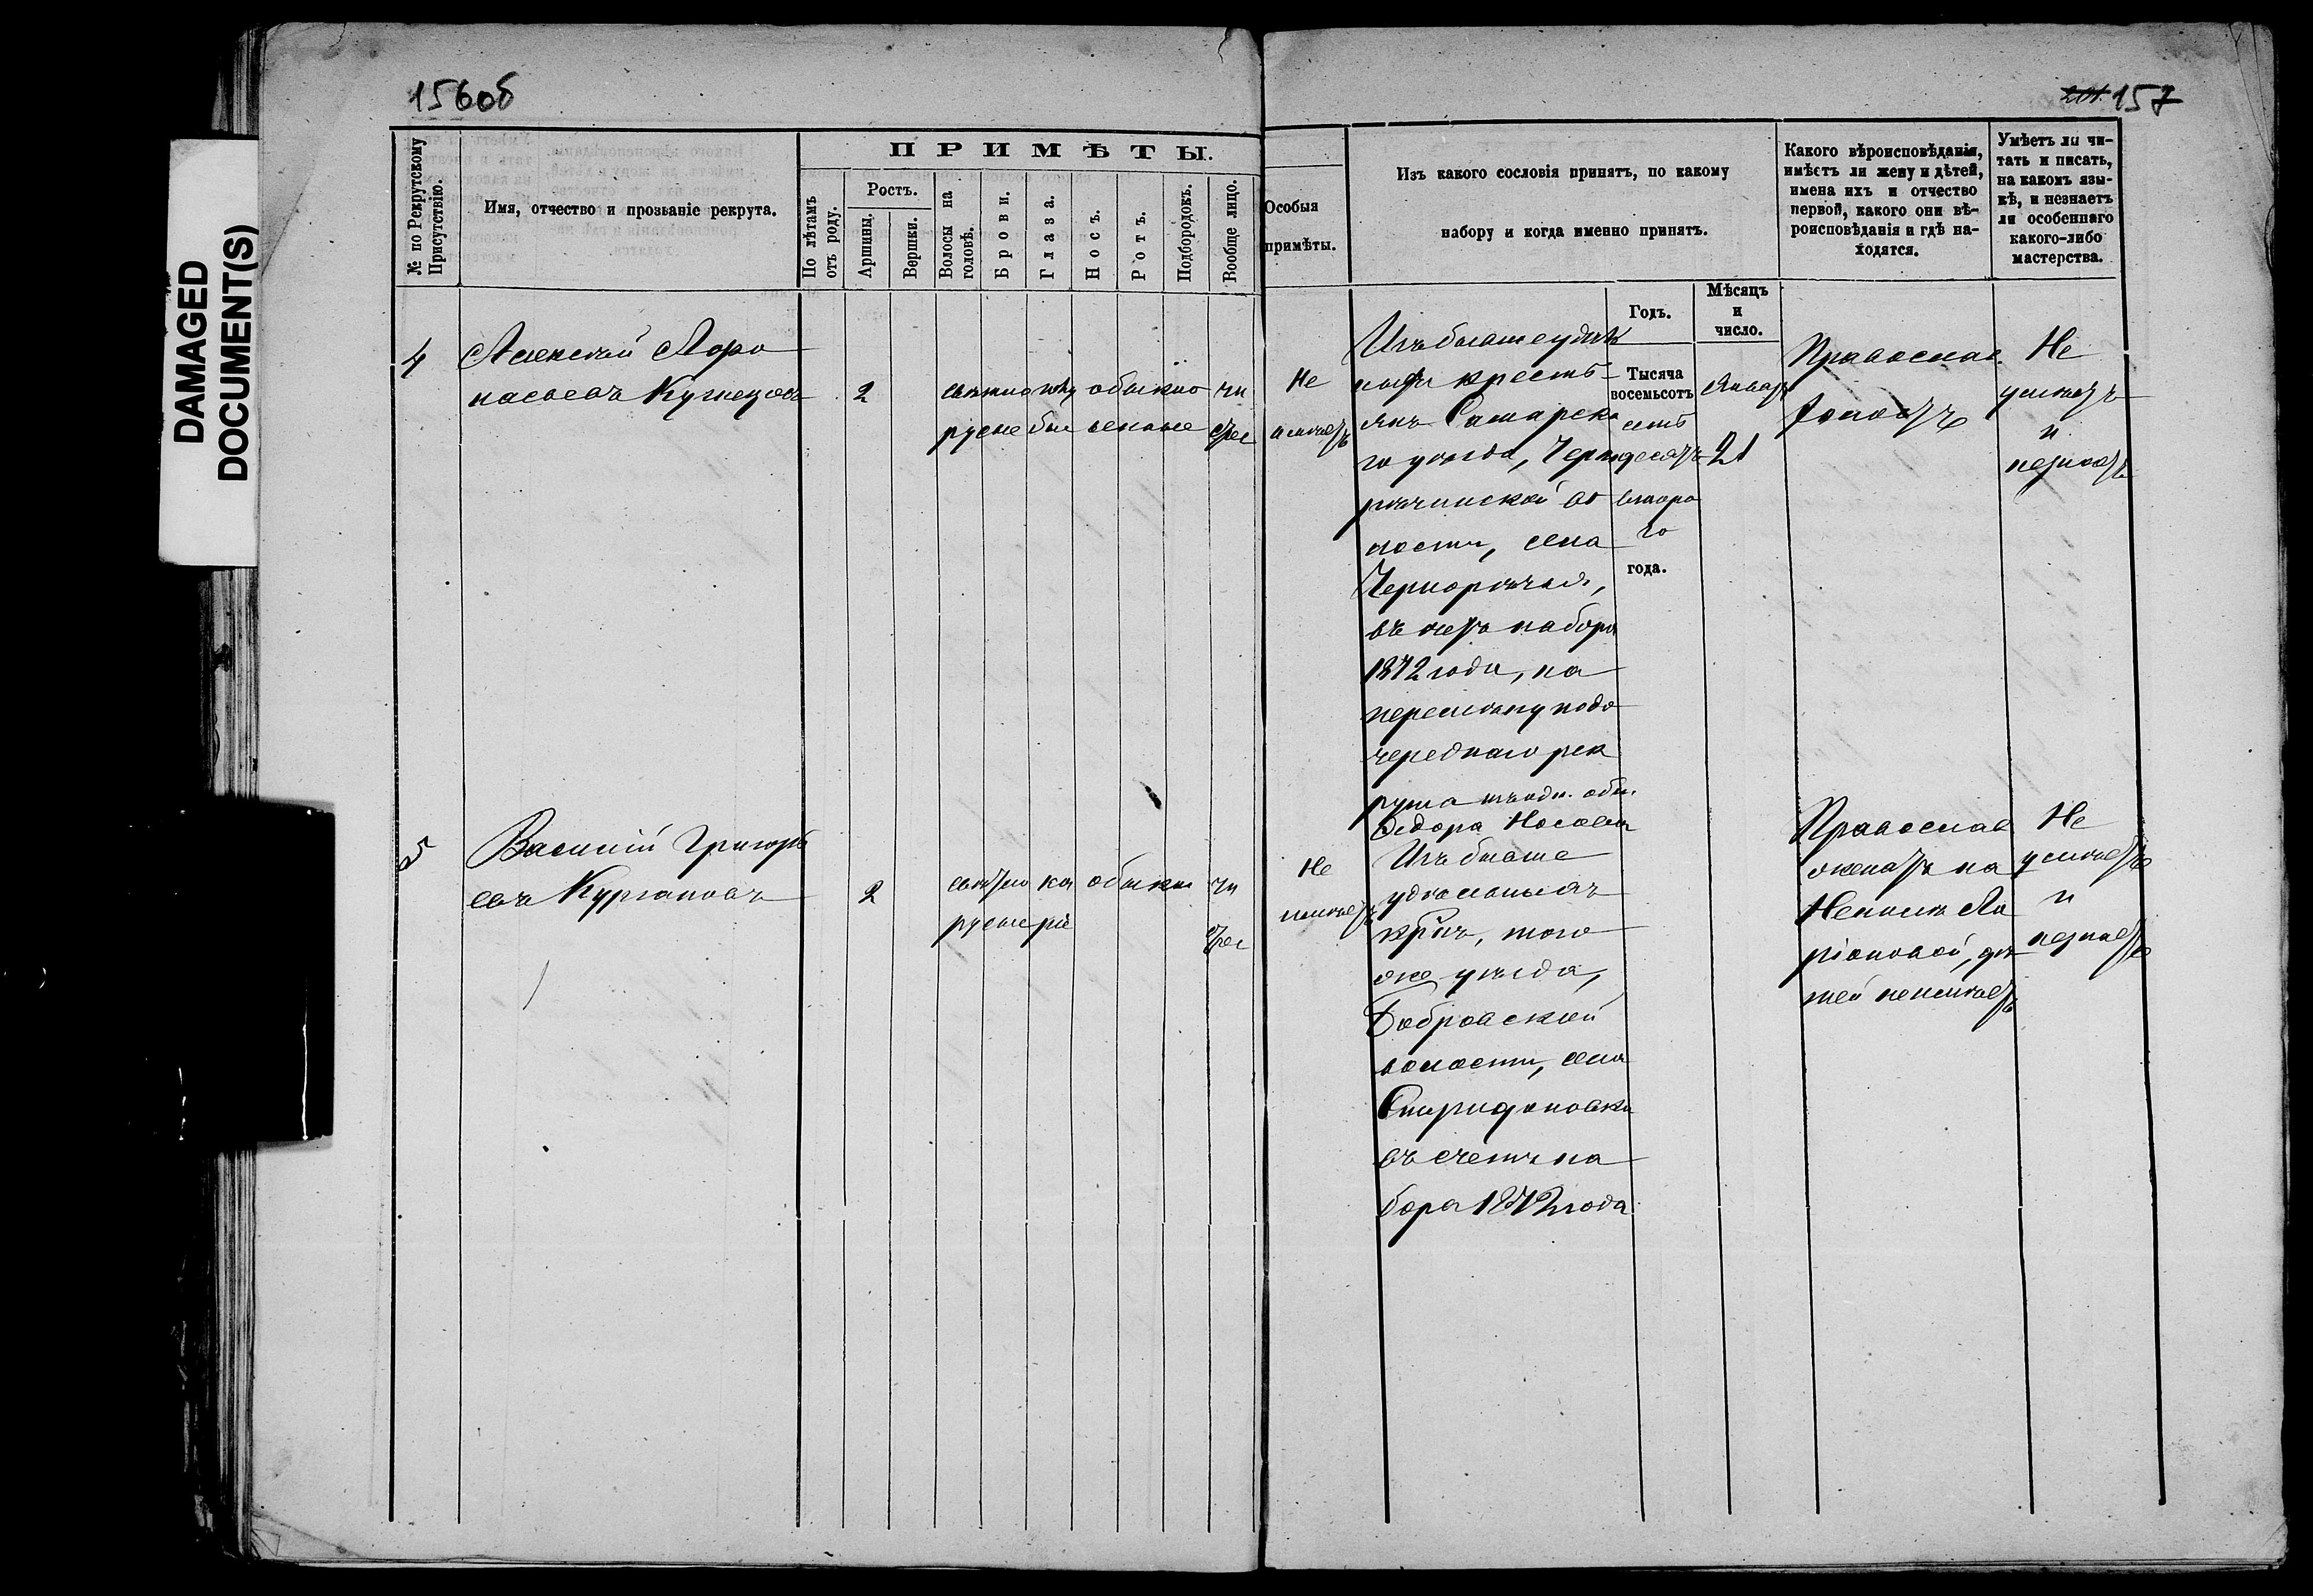 DAMAGED
DOCUMENT(S)
156об
201. 157
№ по Рекрутскому
Присутствію.
Имя, отчество и прозваніе рекрута.
ПРИМѢТЫ.
По лѣтамъ
отъ роду.
Ростъ.
Аршины.
Вершки.
Волосы на
головѣ.
Брови.
Глаза.
Носъ.
Ротъ.
Подбородокъ.
Вообще лицо.
Особыя
примѣты.
Изъ какого сословія принятъ, по какому
набору и когда именно принятъ.
Какого вѣроисповѣданія,
имѣетъ ли жену и дѣтей,
имена ихъ и отчество
первой, какого они вѣ-
роисповѣданія и гдѣ на-
ходятся.
Умѣетъ ли чи-
тать и писать,
на какомъ язы-
кѣ, и незнаетъ
ли особеннаго
какого-либо
мастерства.
Годъ.
Мѣсяцъ
и
число.
4
Алексѣй Афо
насьевъ Кузнецовъ
2
свѣтло голу обыкно чи
русые бые венные стое
Не
имѣетъ
Изъ бывше удѣль
ныхъ кресть
янъ Самарска
го уѣзда, Черно
рѣчинской во
лости, села
Чернорѣчья,
въ счетъ набора
1872 года, на
перемѣну подо
череднаго рек
рута
Федора Носова
Тысяча
восемьсотъ
семь
десятъ
второ
го
года.
Январь
21
Православ.
холостъ
Не
умѣетъ
и
незнаетъ
5
Василій Григорь
евъ Кургановъ
2
свѣтло ка обыкн чи
русые ріе стое
Не
имѣетъ
Изъ бывше
удѣльныхъ
крѣнъ, того
же уѣзда,
Бобровской
волости, села
Спиридоновки
въ счетъ на
бора 1872 года
Православ
женатъ на
Ненилѣ Ла
ріоновой, дѣ
тей неимѣетъ
Не
умѣетъ
и
незнаетъ